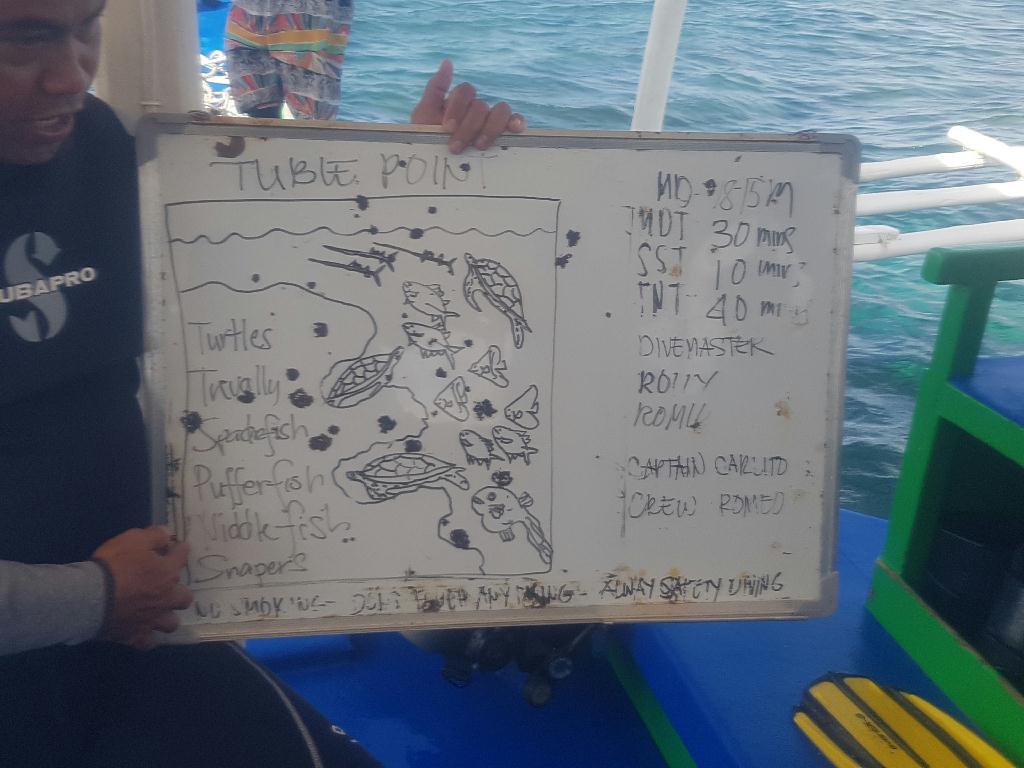 TUBLE POINT
MD - 18/15M
MDT 30 mins
SST 10 mins
TNT 40 mi
DIVEMASTER
ROLLY
ROMIL
CAPTAIN CARLITO
CREW ROMEO
Turtles
Trevally
Spadefish
Pufferfish
Niddle fish
Snapers
NO SMOKING - DON'T TOUCH ANYTHING - ALWAY SAFETY DIVING
UBAPRO